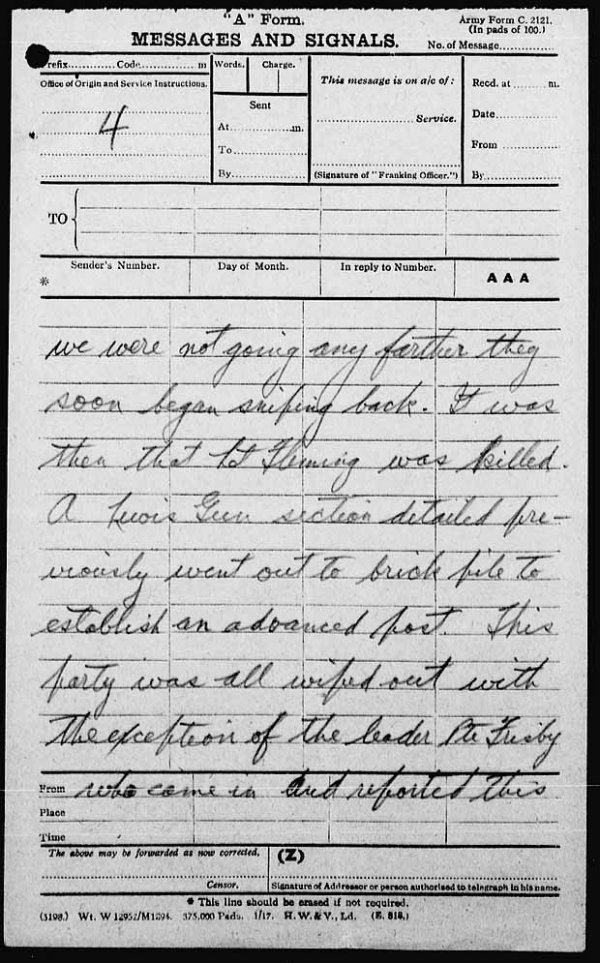 "A" Form.
Army Form C. 2121.
(In pads of 100.)
MESSAGES AND SIGNALS.
No. of Message
Prefix Code m
Words. Charge.
This message is on a/c of:
Recd. at m.
Office of Origin and Service Instructions.
Sent
Date
4
At m.
Service.
From
To
By
(Signature of "Franking Officer.")
By
TO
Sender's Number.
Day of Month.
In reply to Number.
AAA
*
we were not going any farther they
soon began sniping back. It was
then that Lt Fleming was killed.
A Lewis Gun section detailed pre-
viously went out to brick pile to
establish an advanced post. This
party was all wiped out with
the exception of the leader Pte Frisby
From who came in and reported this
Place
Time
The above may be forwarded as now corrected.
(Z)
Censor.
Signature of Addressor or person authorised to telegraph in his name.
* This line should be erased if not required.
(3198.) Wt. W 12952/M1294. 375,000 Pads. 1/17. H.W.&V., Ld. (E. 818.)